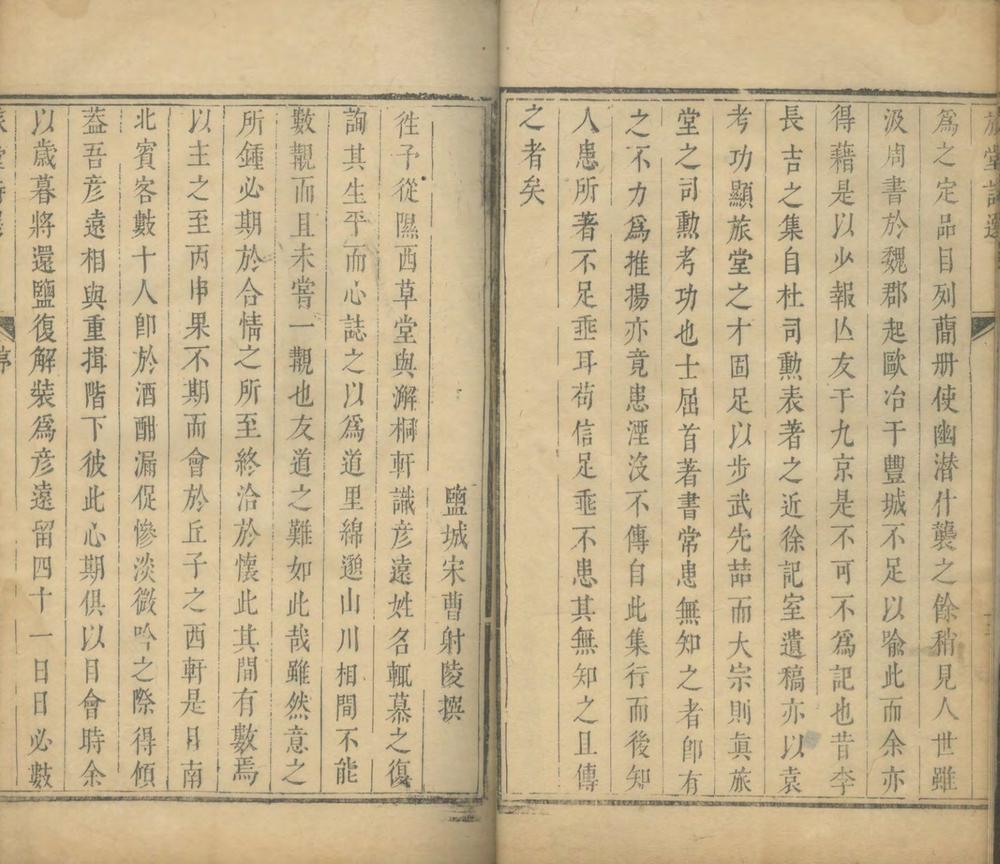 旅堂詩選
爲之定品目列蕳册使幽潜什襲之餘稍見人世雖
汲周書於魏郡起歐冶于豐城不足以喻此而余亦
得藉是以少報亾友于九京是不可不爲記也昔李
長吉之集自杜司勲表著之近徐記室遺稿亦以袁
考功顯旅堂之才固足以步武先喆而大宗則眞旅
堂之司勲考功也士屈首著書常患無知之者卽有
之不力爲推揚亦竟患湮沒不傳自此集行而後知
人患所著不足乖耳苟信足乖不患其無知之且傳
之者矣
鹽城宋曹射陵撰
徃予從隰西草堂與澥桐軒識彦遠姓名輒慕之復
詢其生平而心誌之以爲道里綿邈山川相間不能
數覯而且未嘗一覯也友道之難如此哉雖然意之
所鍾必期於合情之所至終洽於懷此其間有數焉
以主之至丙申果不期而會於丘子之西軒是日南
北賓客數十人卽於酒酣漏促慘淡微吟之際得傾
葢吾彦遠相與重揖階下彼此心期俱以目會時余
以歲暮將還鹽復解裝爲彦遠留四十一日日必數
序